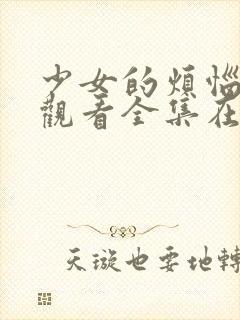 少女的煩惱
觀看全集在
天璇也要地轉